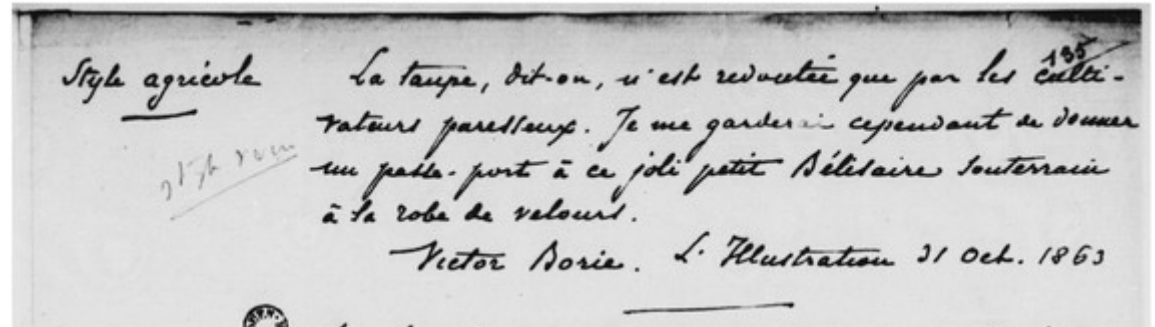 135
Style agricole La taupe, dit-on, n'est redoutée que par les culti-
vateurs paresseux. Je me garderai cependant de donner
un passe-port à ce joli petit Bélisaire souterrain
à sa robe de velours.
Victor Borie. L'Illustration 31 Oct. 1863